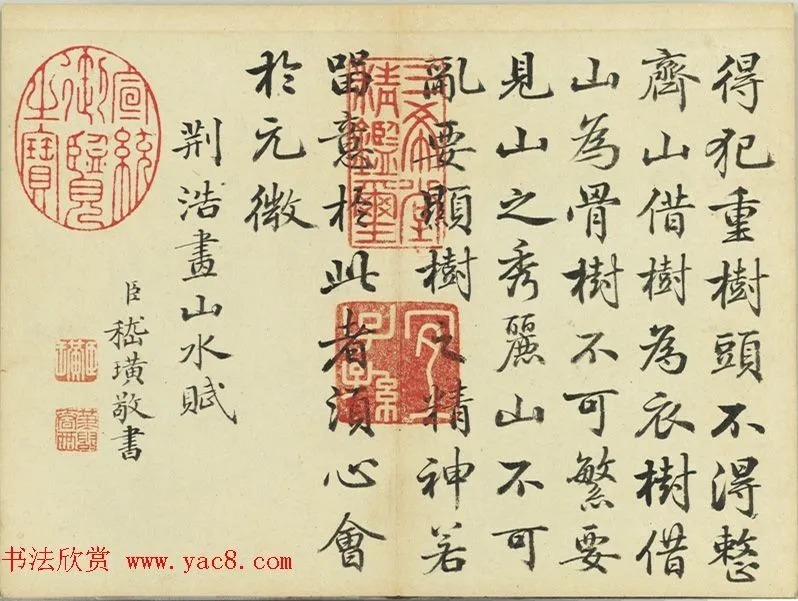 得犯重樹頭不得整
齊山借樹為衣樹借
山為骨樹不可繁要
見山之秀麗山不可
亂要顯樹之精神若
留意於此者須心會
於元微
荆浩畫山水賦
臣嵇璜敬書
三希堂精鑑璽
宜子孫
宣統御覽之寶
书法欣赏 www.yac8.com